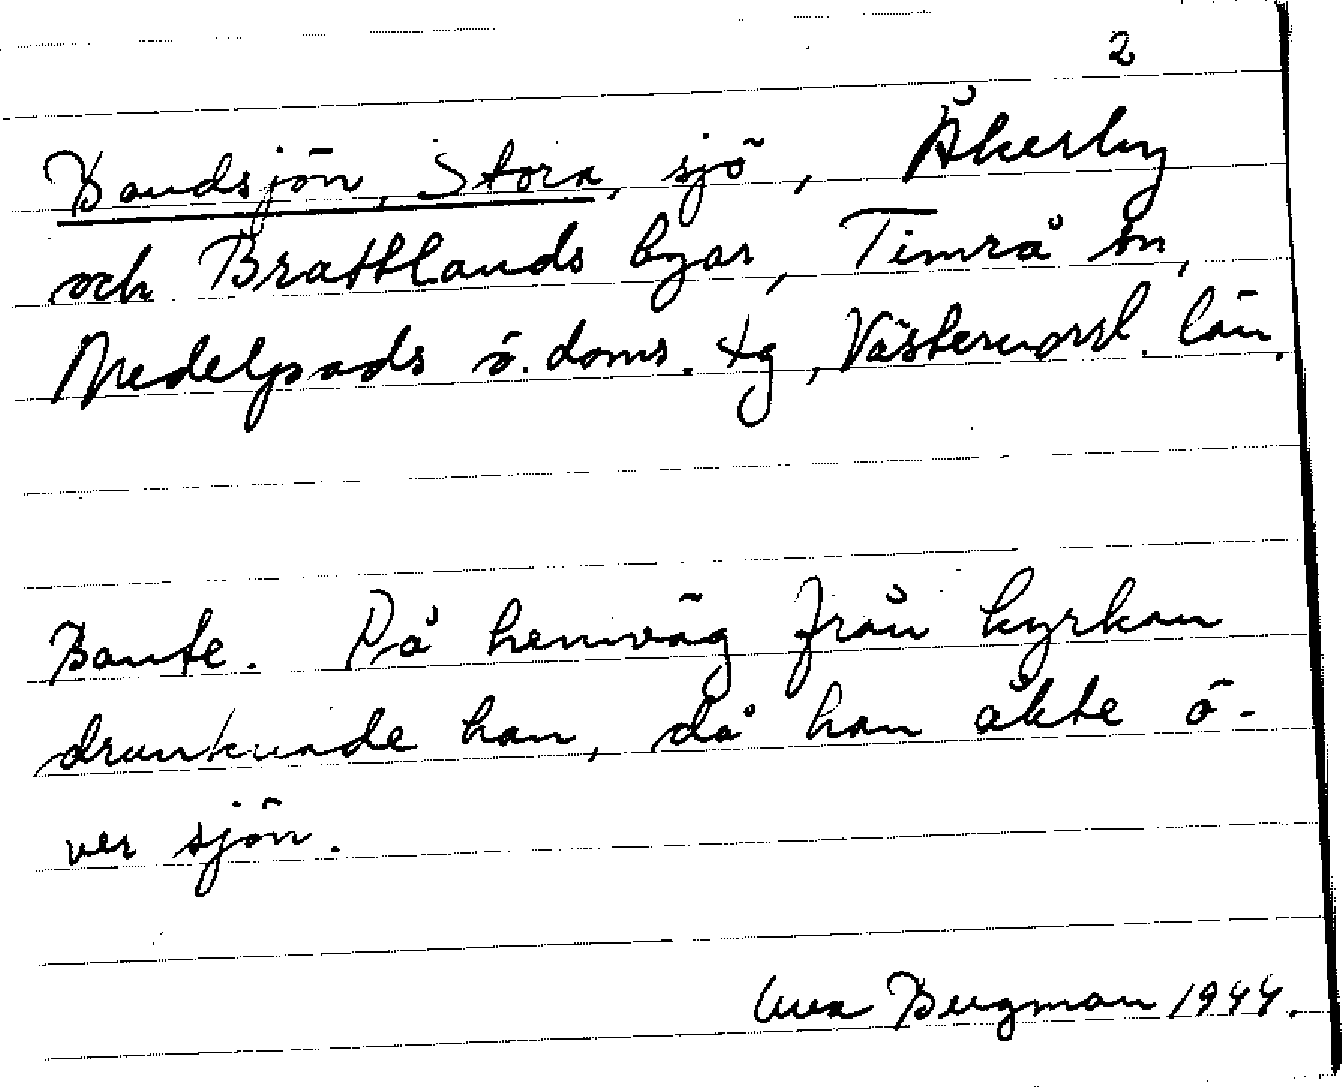 2
Bandsjön, Stora, sjö, Åkerby
och Brattlands byar, Timrå sn,
Medelpads ö. doms. tg, Västernorrl. län.
Bonte. På hemväg från kyrkan
drunknade han, då han åkte ö-
ver sjön.
Bergman 1944.